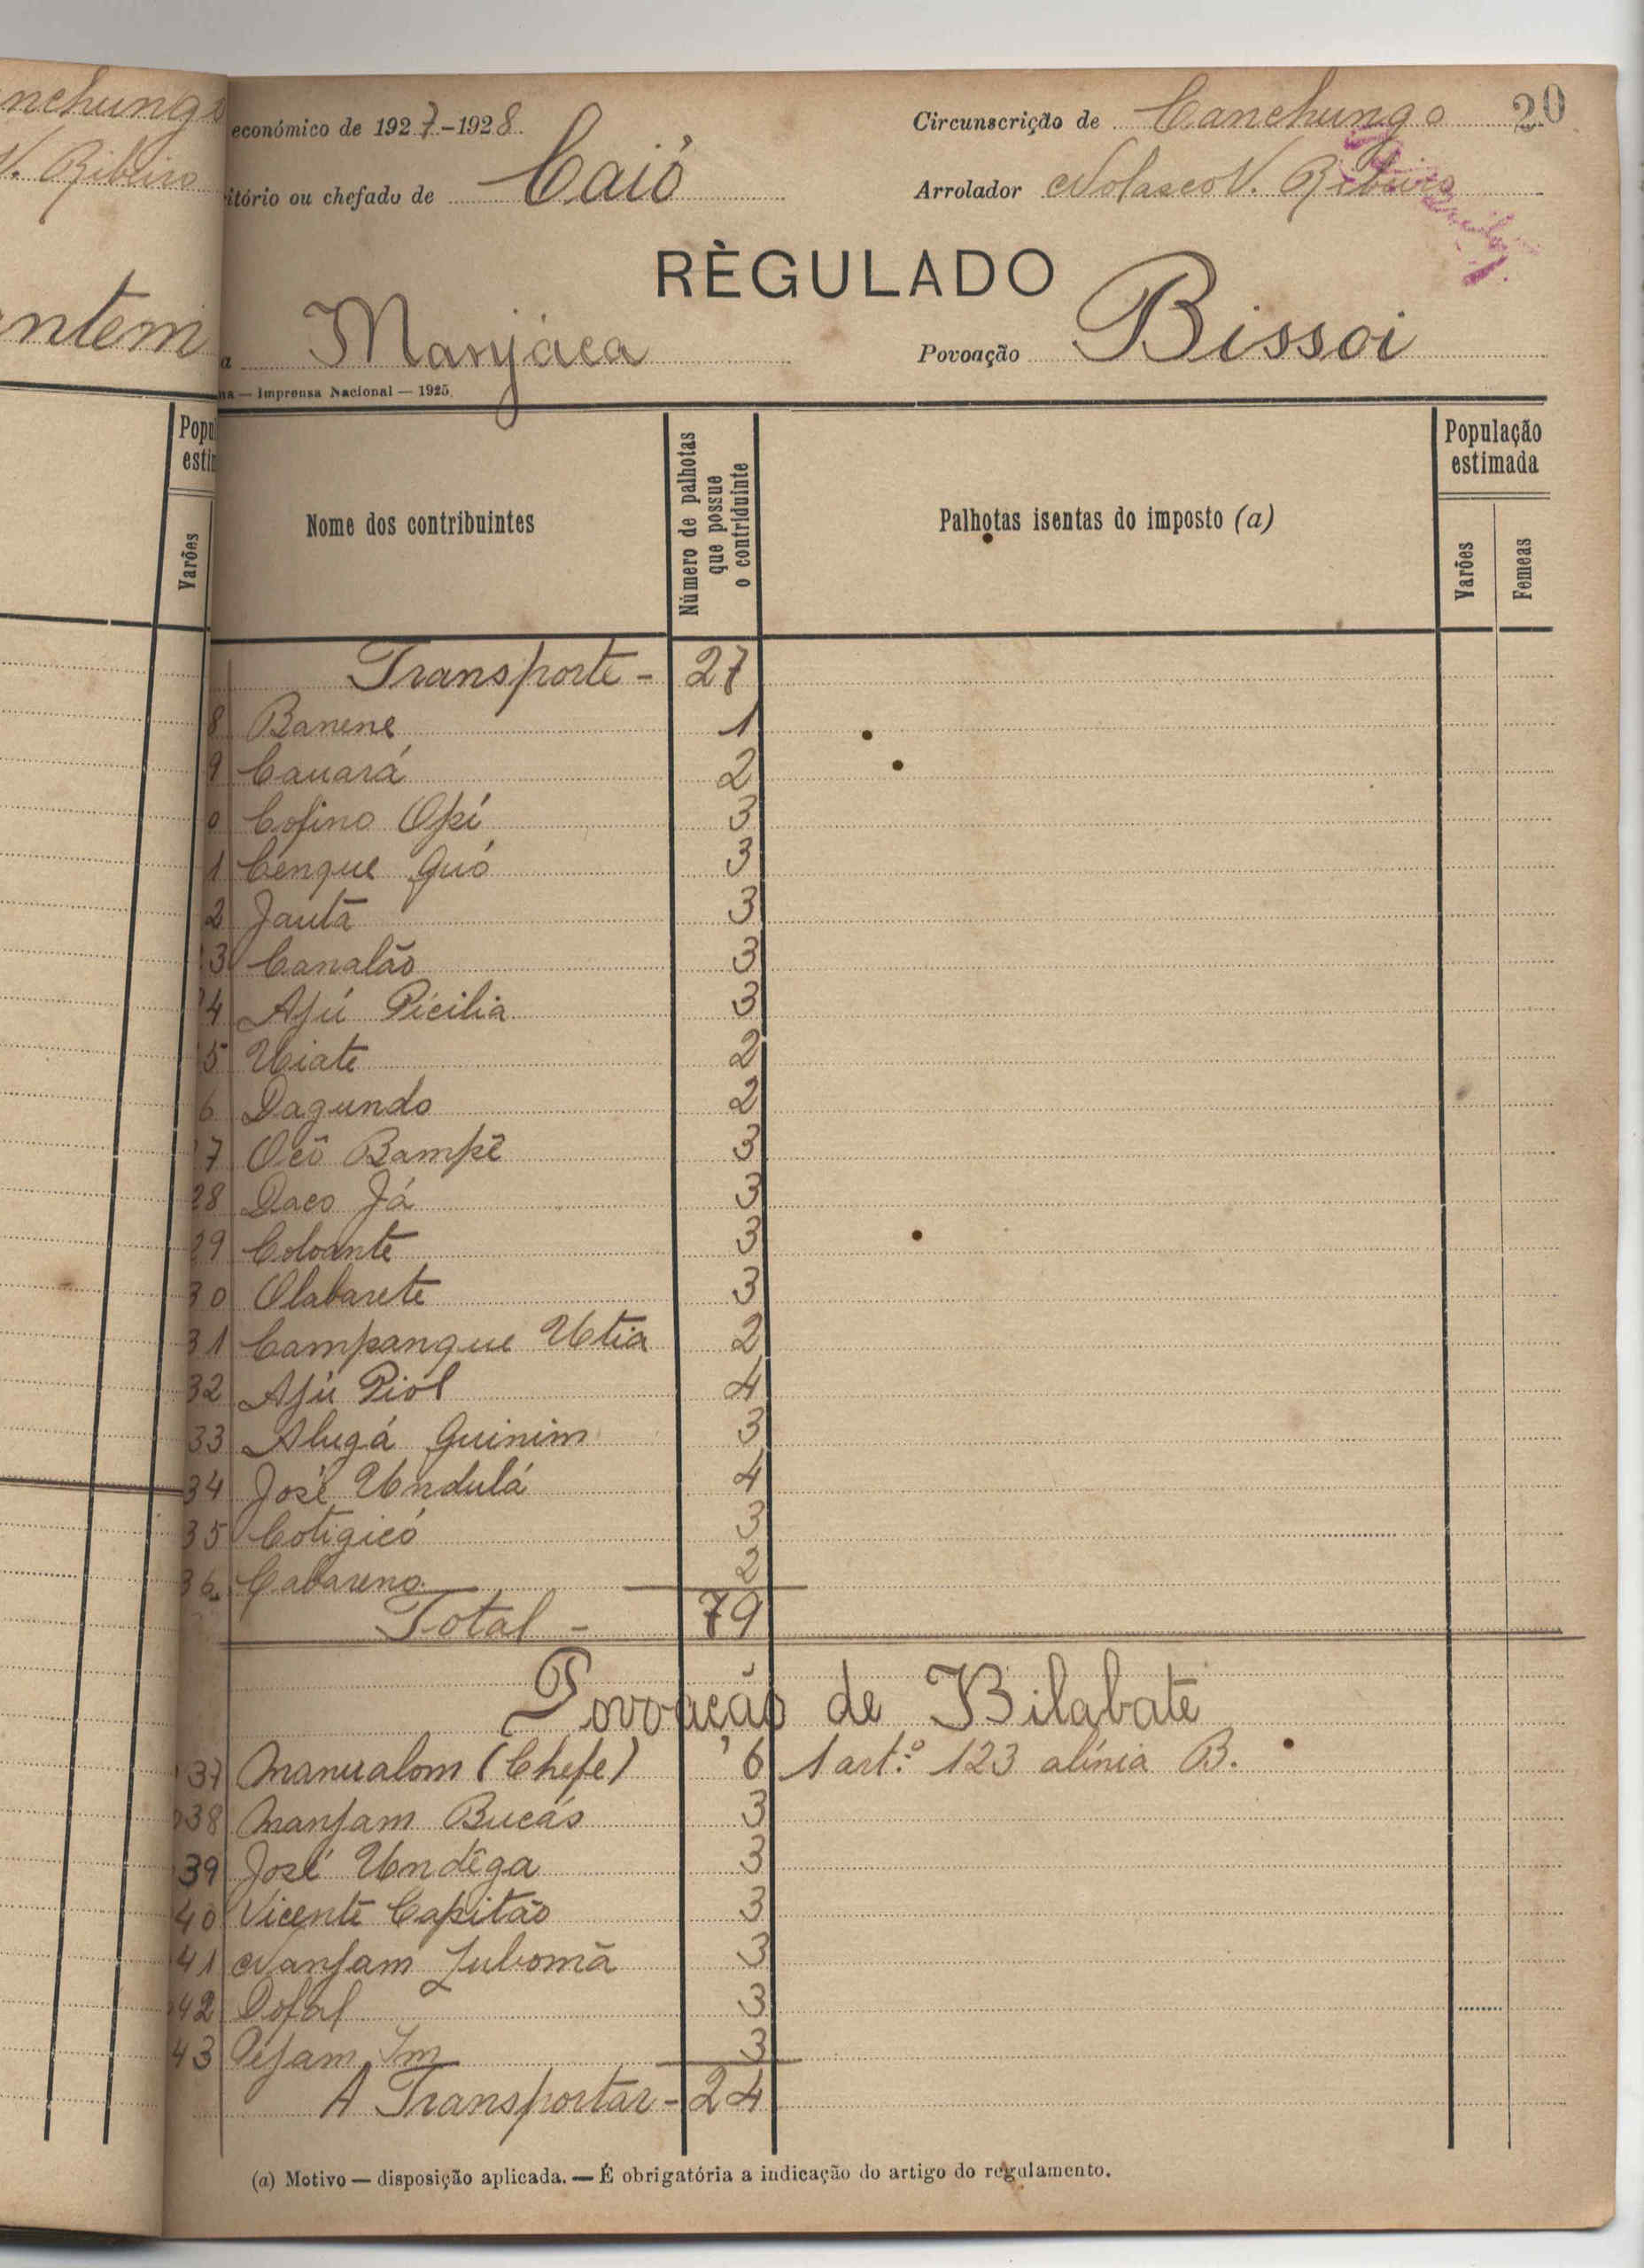 nchungo
V. Ribeiro
ntem
Popu
estim
Varões
económico de 1927-1928
Circunscrição de Canchungo 20
itório ou chefado de Caió
Arrolador Nolasco V. Ribeiro
RÈGULADO
a Manjaca
Povoação Bissoi
na — Imprensa Nacional — 1925
Nome dos contribuintes
Número de palhotas que possue o contriduinte
Palhotas isentas do imposto (a)
População estimada
Varões
Femeas
Transporte - 27
8 Banene 1
9 Cauará 2
0 Cofino Opí 3
1 Cenque Guó 3
2 Jautã 3
3 Canalão 3
4 Ajú Picilia 3
5 Uiate 2
6 Dagundo 2
7 Ocô Bampê 3
28 Daco Já 3
29 Coloante 3
30 Olabarete 3
31 Campanque Utia 2
32 Ajú Piol 4
33 Alugá Guinim 3
34 José Undulá 4
35 Cotigicó 3
36 Cabareno 2
Total - 79
Povoação de Bilabate
37 Manualom (Chefe) 6 1 art.º 123 alínia B.
38 Manjam Bucás 3
39 José Undêga 3
40 Vicente Capitão 3
41 Nanjam Julomã 3
42 Dofal 3
43 Pejam Im 3
A Transportar - 24
(a) Motivo — disposição aplicada. — É obrigatória a indicação do artigo do regulamento.